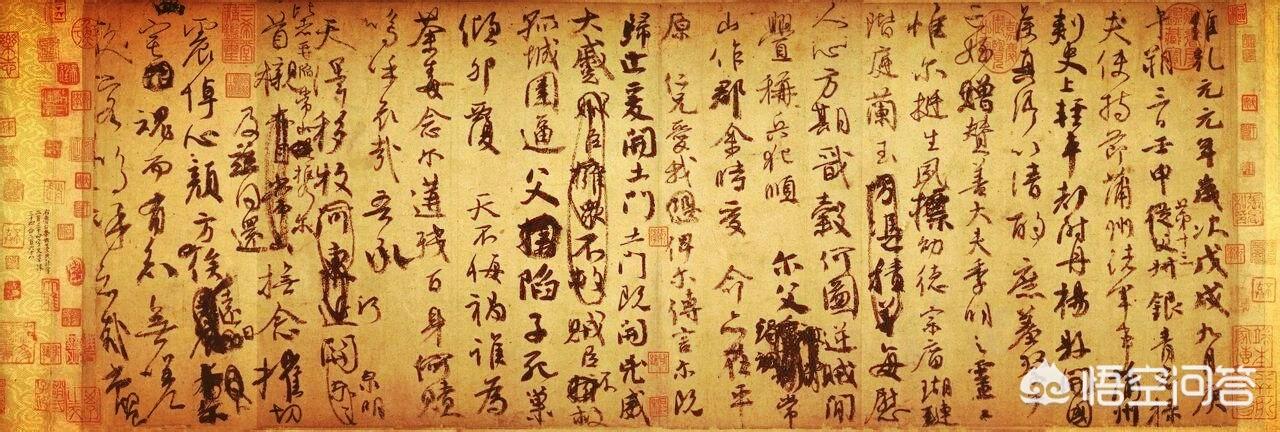 維乾元元年歲次戊戌九月庚
午朔三日壬申第十三從父叔銀青光祿
夫使持節蒲州諸軍事蒲州
刺史上輕車都尉丹楊縣開國
侯真卿以清酌庶羞祭于
亡姪贈贊善大夫季明之靈曰
惟爾挺生夙標幼德宗廟瑚璉
階庭蘭玉方憑積善每慰
人心方期戩穀何圖逆賊間
釁稱兵犯順爾父竭誠常
山作郡余時受命亦在平
原仁兄愛我俾爾傳言爾既
歸止爰開土門土門既開兇威
大蹙賊臣擁眾不救賊臣不救
孤城圍逼父陷子死巢
傾卵覆天不悔禍誰為
荼毒念爾遘殘百身何贖
嗚呼哀哉吾承
天澤移牧河東近河關泉明
比者再陷常山攜爾
首櫬及茲同還撫念摧切
震悼心顏方俟遠日
宅魂而有知無嗟
久客嗚呼哀哉尚饗
悟空问答